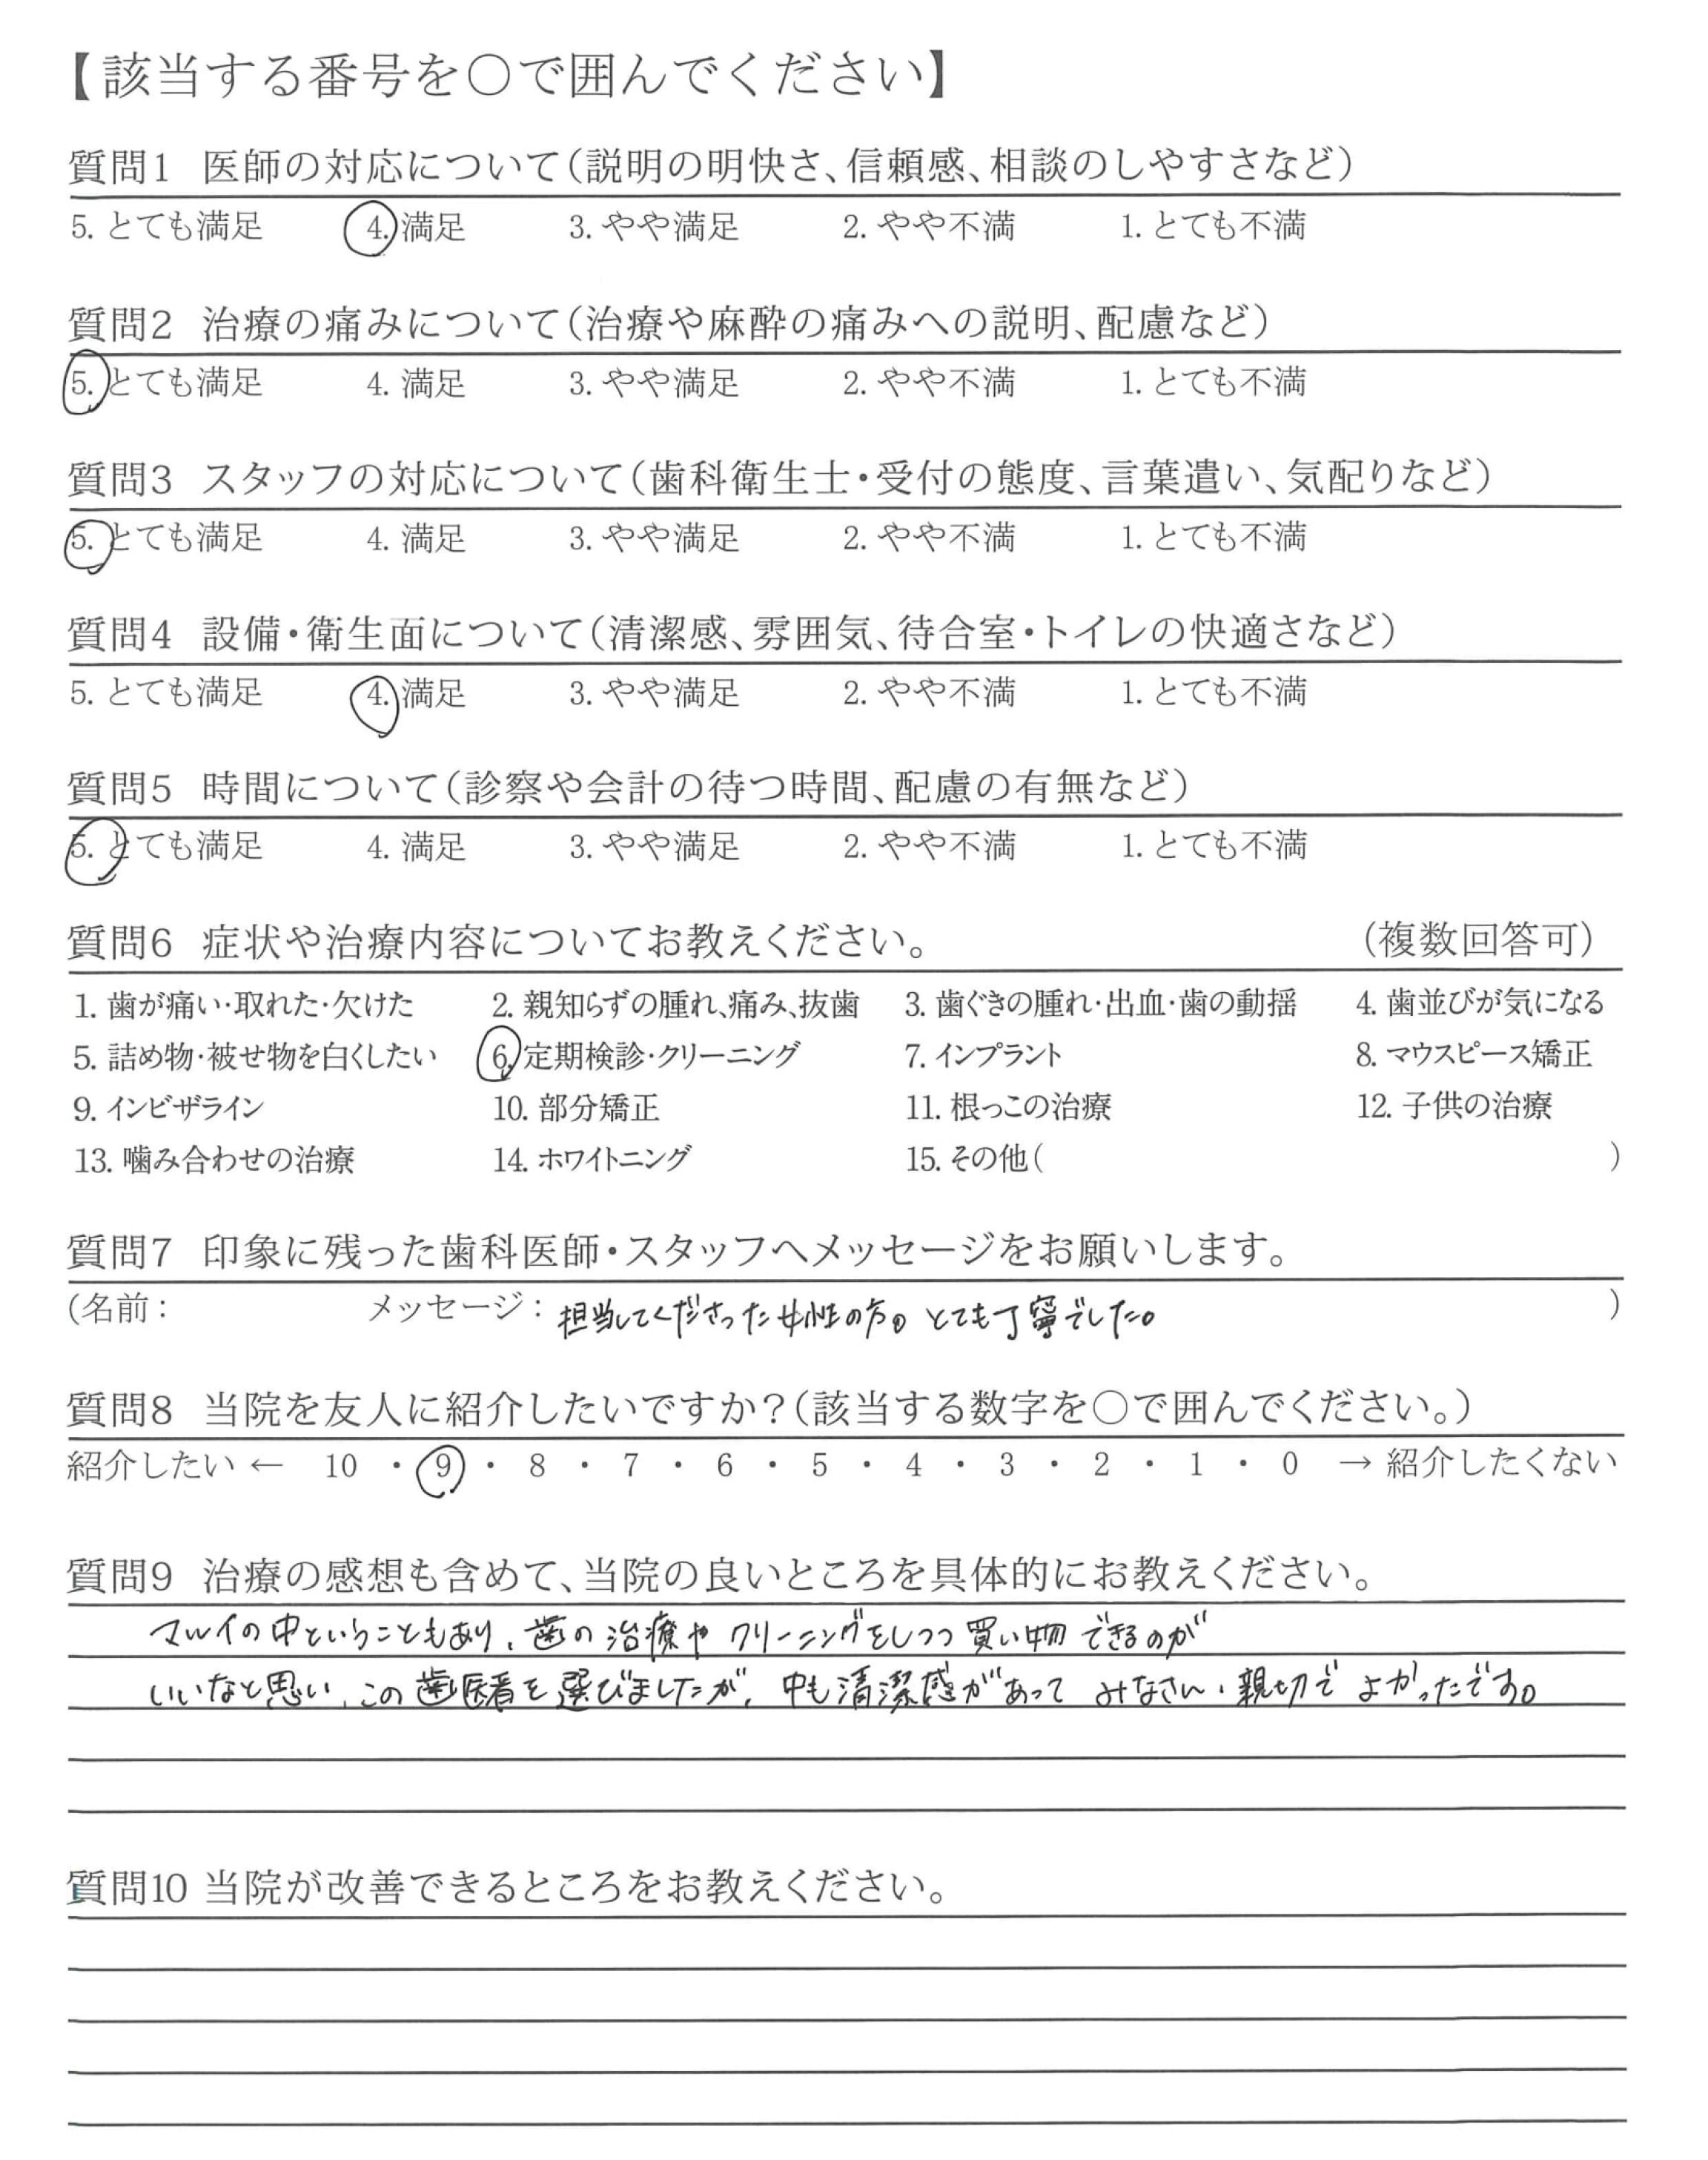 【該当する番号を○で囲んでください】
質問1 医師の対応について(説明の明快さ、信頼感、相談のしやすさなど)
5. とても満足 4. 満足 3. やや満足 2. やや不満 1. とても不満
質問2 治療の痛みについて(治療や麻酔の痛みへの説明、配慮など)
5. とても満足 4. 満足 3. やや満足 2. やや不満 1. とても不満
質問3 スタッフの対応について(歯科衛生士・受付の態度、言葉遣い、気配りなど)
5. とても満足 4. 満足 3. やや満足 2. やや不満 1. とても不満
質問4 設備・衛生面について(清潔感、雰囲気、待合室・トイレの快適さなど)
5. とても満足 4. 満足 3. やや満足 2. やや不満 1. とても不満
質問5 時間について(診察や会計の待つ時間、配慮の有無など)
5. とても満足 4. 満足 3. やや満足 2. やや不満 1. とても不満
質問6 症状や治療内容についてお教えください。 (複数回答可)
1. 歯が痛い・取れた・欠けた 2. 親知らずの腫れ、痛み、抜歯 3. 歯ぐきの腫れ・出血・歯の動揺 4. 歯並びが気になる
5. 詰め物・被せ物を白くしたい 6. 定期検診・クリーニング 7. インプラント 8. マウスピース矯正
9. インビザライン 10. 部分矯正 11. 根っこの治療 12. 子供の治療
13. 噛み合わせの治療 14. ホワイトニング 15. その他( )
質問7 印象に残った歯科医師・スタッフへメッセージをお願いします。
(名前: メッセージ: 担当してくださった女性の方。とても丁寧でした。 )
質問8 当院を友人に紹介したいですか?(該当する数字を○で囲んでください。)
紹介したい ← 10 ・ 9 ・ 8 ・ 7 ・ 6 ・ 5 ・ 4 ・ 3 ・ 2 ・ 1 ・ 0 → 紹介したくない
質問9 治療の感想も含めて、当院の良いところを具体的にお教えください。
マルイの中ということもあり、歯の治療やクリーニングをしつつ買い物できるのが
いいなと思い、この歯医者を選びましたが、中も清潔感があってみなさん、親切でよかったです。
質問10 当院が改善できるところをお教えください。